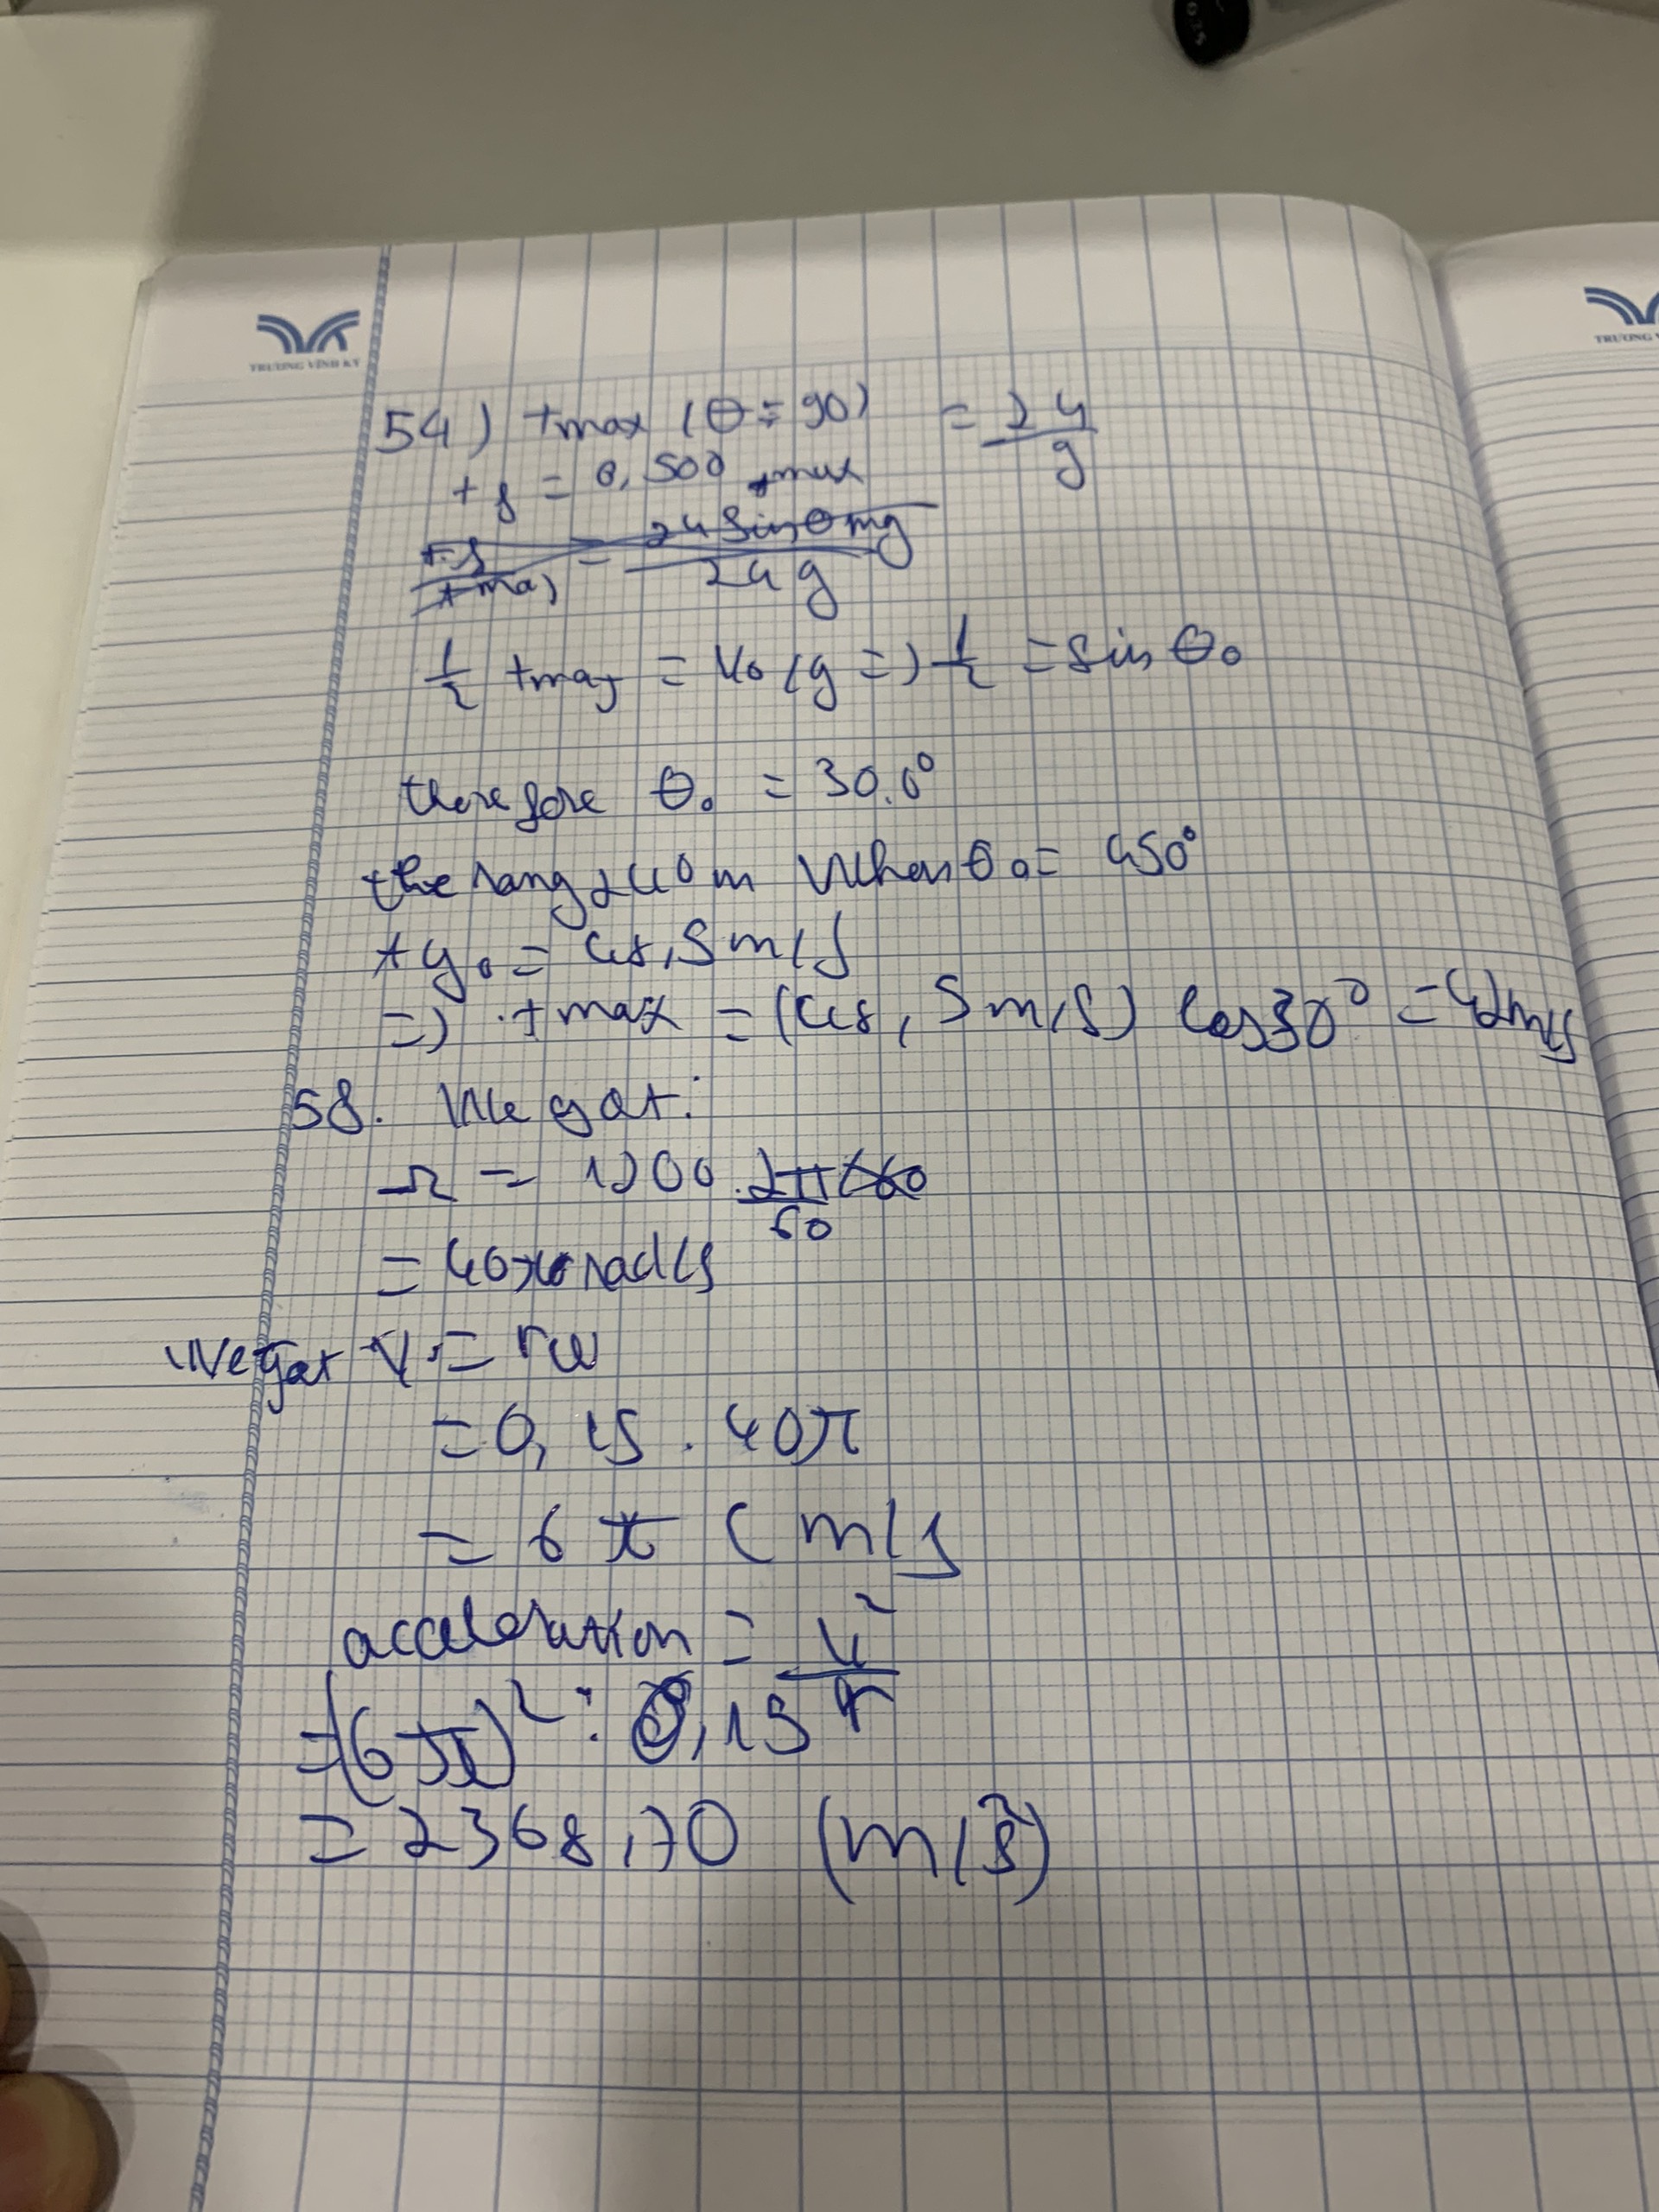 TRƯƠNG VĨNH KÝ
54) tmax (θ = 90) = 2u/g
t g = 0,500 tmax
2u sinθ mg / 2u g
1/2 tmax = v0/g => 1/2 = sin θ0
therefore θ0 = 30.0°
the rang 240 m When θ0 = 450°
+ y0 = 48,5 m/s
=> tmax = (48,5 m/s) Cos30° = 42 m/s
58. We got:
Ω = 1200 . 2π/60
= 40π rad/s
We got V = rω
= 0,15 . 40π
= 6π (m/s
acceleration = v²/r
= (6π)² : 0,15
= 2368,70 (m/s²)